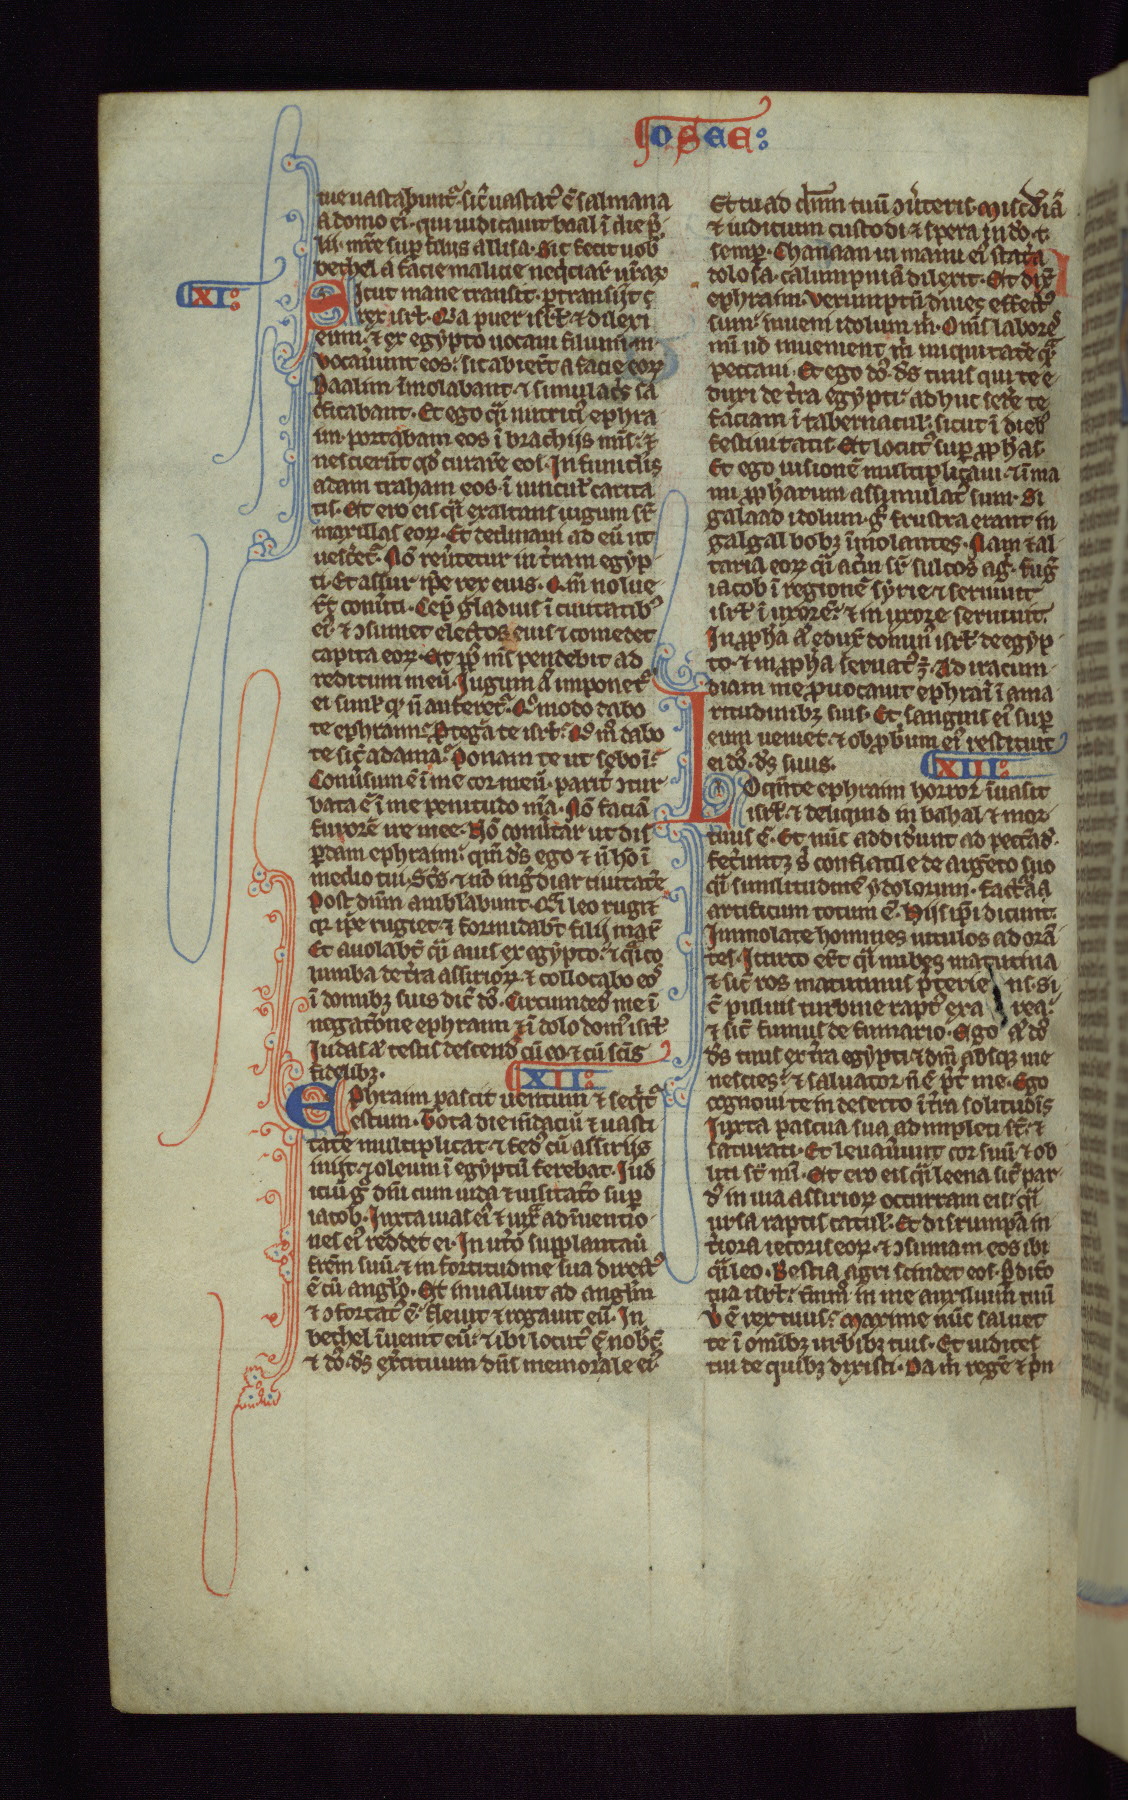 OSEE:
tue uastabuntr̃. sic̃ uastatꝰ ẽ salmana
a domo eiꝰ. qui iudicauit baal ĩ die p̃
lii. mr̃e sup̱ filius allisa. Sic fecit uob̃
bethel a facie malicie neq̇ciar̃ ur̃aꝝ
XI:
Sicut mane transit. ꝑtransijt ⁊
rex isr̃l. Q̃a puer isr̃l. ⁊ dilexi
eum. ⁊ ex egypto uocaui filium m̃
Vocauẽunt eos. sic abier̃t a facie eoꝝ
Baalim ĩmolabant. ⁊ simulacr̃s sa
c̃ficabant. Et ego q̃i nutriciꝰ ephra
im. portabam eos ĩ brachijs mĩs. ⁊
nescierũt qđ curarẽ eos. In funiclis
adam traham eos. ĩ uincul̃ carita
tis. Et ero eis q̃i exaltans iugum sr̃
maxillas eoꝝ. Et declinaui ad eũ ut
uescer̃t̃. Nõ reũtetur in tr̃am egyp
ti. Et assur ip̃e rex eius. Q̃m̃ nolue
rt̃ conũti. Cep̃ gladius ĩ ciuitatibꝰ
eiꝰ. ⁊ ɔsumet electos eius ⁊ comedet
capita eoꝝ. Et pp̃ls mĩs pendebit ad
reditum meũ. Iugum aũ imponetr̃
ei siml̃ qđ ñ auferetr̃. Q̊modo dabo
te ephraim. ꝑtegã te isr̃l. Q̊m̃ dabo
te sic̃ adama. Ponam te ut seboĩ.
Conũsum ẽ ĩ me cor meũ. parit̃ ɔtur
bata ẽ ĩ me penitudo m̃a. Nõ faciã
furorẽ ire mee. Nõ conũtar ut dis
ꝑdam ephraim. qm̃ d̃s ego ⁊ ñ hõ ĩ
medio tui. Sc̃s. ⁊ nõ ingr̃diar ciuitatẽ
Post dñm amblãbunt. Q̃i leo rugit
q̃r ip̃e rugiet. ⁊ formidabt̃ filij mar̃
Et auolabt̃ q̃i auis ex egypto. ⁊ q̃i co
lumba de tr̃a assirioꝝ. ⁊ collocabo eõs
ĩ domibꝫ suis dic̃ dõs. Circumdeđ me ĩ
negatõne ephraim ⁊ ĩ dolo domꝰ isr̃l
Iudas aũ testis descenđ cũ eo ⁊ cũ scĩs
fidelibꝫ.
XII:
Ephraim pascit uentum ⁊ seq̇tr̃
estum. Tota die mẽdaciũ ⁊ uasti
tatẽ multiplicat. ⁊ fedꝰ cũ assirijs
inijt. ⁊ oleum ĩ egyptũ ferebat. Iud
iciũ g̃ dñi cum iuda ⁊ uisitatõ sup̱
iacob. Iuxta uias eiꝰ ⁊ iux̃ adinuentio
nes eiꝰ reddet ei. In utõ supplantaũ
fr̃em suũ. ⁊ in fortitudine sua direcꝰ
ẽ cũ angl̃o. Et inualuit ad angl̃m
⁊ ɔfortatꝰ ẽ. fleuit ⁊ rogauit eũ. In
bethel ĩuenit eũ. ⁊ ibi locutꝰ ẽ nobc̃
⁊ dõs. d̃s exercituum dñs memorale eiꝰ
Et tu ad dm̃m tuũ ɔũteris. Misc̃điã
⁊ iudicium custodi ⁊ spera in dõ. t.
semꝑ. Chanaan in manu eiꝰ statãa
dolosa. calumpniã dilexit. Et dix̃
ephraim. Verumptñ diues effectꝰ
sum. inueni idolum m̃. Om̃s laborẽs
mĩ nõ inuenient m̃ iniquitatẽ q̃
peccaui. Et ego dõs. d̃s tuus qui te e
duxi de tr̃a egypti. adhuc sedẽ te
faciam ĩ tabernacul̃. sicut ĩ diebꝰ
festiuitatis. Et locutꝰ sup̱ ꝓphãs.
Et ego uisionẽ multiplicaui. ⁊ ĩ ma
nu ꝓpharum assimulatꝰ sum. Si
galaad idolum. g̃ frustra erant in
galgal bobꝫ ĩmolantes. Nam ⁊ al
taria eoꝝ q̃i acũi sr̃ sulcos ag̃. fuḡ
iacob ĩ regionẽ syrie. ⁊ seruiuit
isr̃l ĩ uxorẽ. ⁊ in uxore seruiuit.
In ꝓphã aũ eduẋ dominꝰ isr̃l de egyp
to. ⁊ in ꝓpha seruatꝰ ẽ. Ad iracun
diam me ꝓuocauit ephraĩ ĩ ama
ritudinibꝫ suis. Et sanguis eiꝰ sup̱
eum ueniet. ⁊ obꝓbrium eiꝰ restituit
ei dõs. d̃s suus.
XIII:
Loquẽte ephraim horror ĩuasit
isr̃l. ⁊ deliquid in bahal ⁊ mor
tuus ẽ. Et nũc addiderunt ad peccađ.
fecẽuntꝫ s̃ conflatile de argẽto suo
q̃i similitudinẽ ydolorum. factr̃a
artificum totum ẽ. His ip̃i dicunt.
Immolate homines uitulos adorã
tes. Iccirco ert̃ q̃i nubes matutina
⁊ sic̃ ros matutinus p̃terie ns. si
c̃ puluis turbine raptꝰ ex a rea.
⁊ sic̃ fumus de fumario. Ego aũ dõs
d̃s tuus ex tr̃a egypti. ⁊ dm̃ absqꝫ me
nescies. ⁊ saluator ñ ẽ pr̃t me. Ego
cognoui te in deserto ĩ tr̃a solitudĩs
Iuxta pascua sua adimpleti st̃. ⁊
saturati. Et leuauẽunt cor suũ. ⁊ ob
liti st̃ mĩ. Et ero eis q̃i leena sic̃ par
dꝰ in uia assirioꝝ occurram eis. q̃i
ursa raptis catul̃. Et disrumpã in
tiora iecoris eoꝝ. ⁊ ɔsumam eos ibi
q̃i leo. Bestia agri scindet eos. ꝑditio
tua isr̃l. tm̃m in me auxilium tuũ
Vᵇ ẽ rex tuus. Maxime nũc saluet
te ĩ omĩbꝫ urbibꝫ tuis. Et iudices
tui de quibꝫ dixisti. Da m̃ regẽ ⁊ p̃n